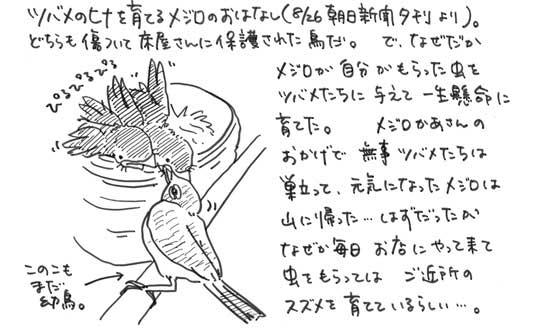 ツバメのヒナを育てるメジロのおはなし(8/26 朝日新聞夕刊より)。
どちらも傷ついて床屋さんに保護された鳥だ。 で、なぜだか
メジロが自分がもらった虫を
ツバメたちに与えて一生懸命に
育てた。 メジロかあさんの
おかげで無事ツバメたちは
巣立って、元気になったメジロは
山に帰った…はずだったが
なぜか毎日お店にやって来て
虫をもらっては ご近所の
スズメを育てているらしい…。
ぴるぴるぴる
このこも
まだ
幼鳥。